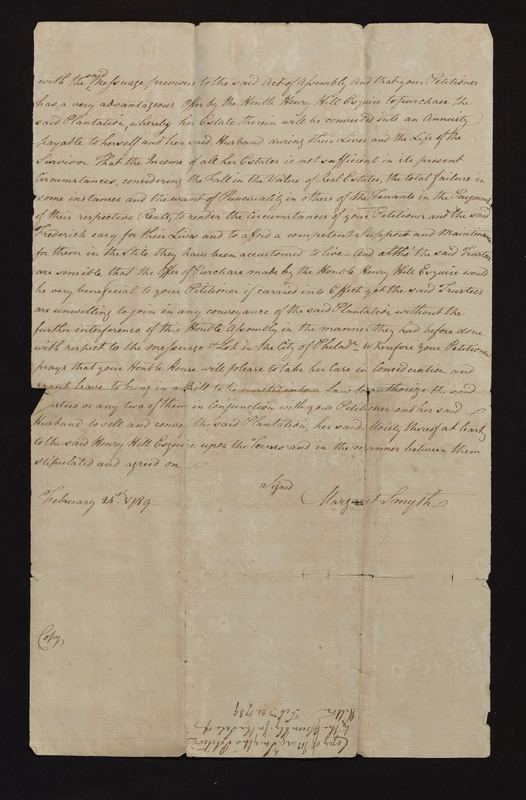 with the said Messuage previous to the said Act of Assembly and that your Petitioner
has a very advantageous Offer by the Honble Henry Hill Esquire to purchase the
said Plantation, whereby her Estate therein will be converted into an Annuity
payable to herself and her said Husband during their Lives and the Life of the
Survivor That the Income of all her Estates is not sufficient in its present
Circumstances, considering the Fall in the Value of Real Estates, the total failure in
some instances and the want of Punctuality in others of the Tenants in the Payment
of their respective Rents, to render the Circumstances of your Petitioner and the said
Frederick easy for their Lives and to afford a competent Support and Maintenance
for them in the Stile they have been accustomed to live — And altho' the said Trustees
are sensible that the Offer of Purchase made by the Honble Henry Hill Esquire would
be very beneficial to your Petitioner if carried into Effect yet the said Trustees
are unwilling to join in any conveyance of the said Plantation without the
further interference of this Honble Assembly in the manner they had before done
with respect to the messuage & Lot in the City of Philada. Wherefore your Petitioner
prays that your Honble House will please to take her Case in Consideration and
grant Leave to bring in a Bill to be enacted into a Law to authorize the said
Trustees or any two of them in Conjunction with your Petitioner and her said
Husband to sell and convey the said Plantation, her said Moiety thereof at least
to the said Henry Hill Esquire upon the Terms and in the manner between them
stipulated and agreed on
Signed
Margaret Smyth
February 21st 1789
Copy
Copy of Margt Smyth's Petition
to the Assembly for the Sale of
Feb. 21. 1789